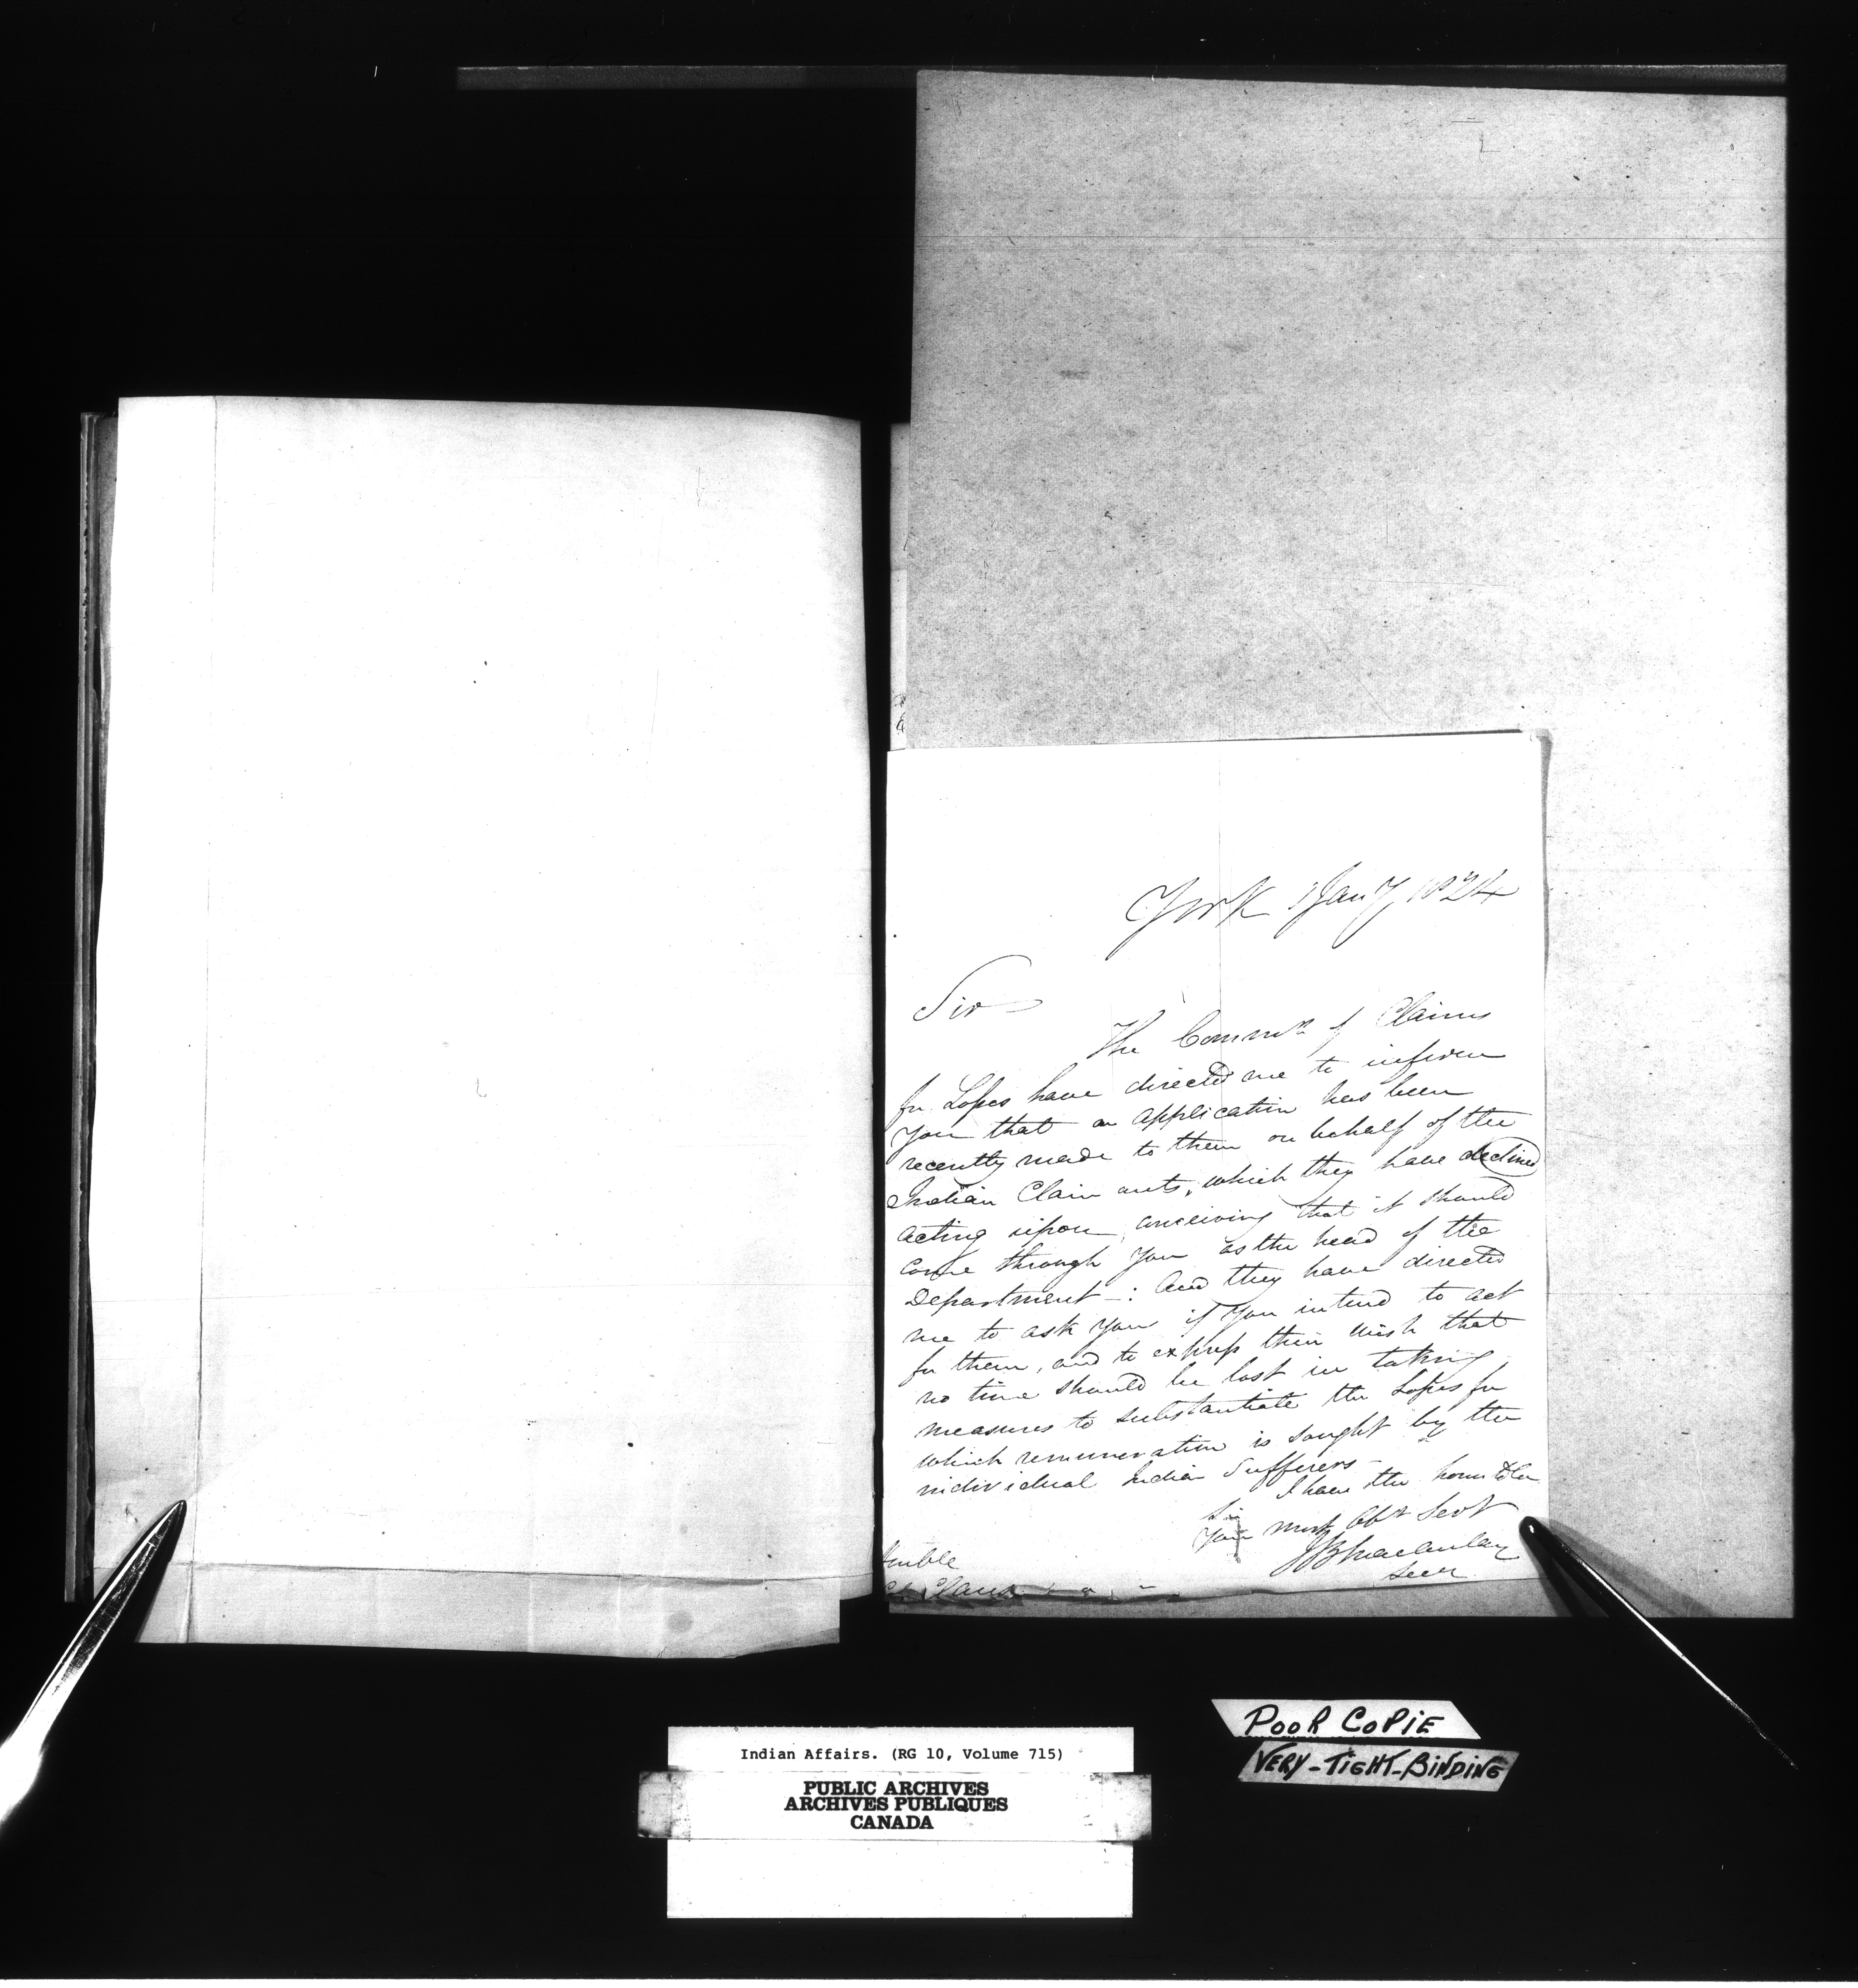 York 1 Jany 1824
Sir
The Commrs of Claims
for Losses have directed me to inform
you that an application has been
recently made to them on behalf of the
Indian Claimants, which they have declined
acting upon, conceiving that it should
come through you as the head of the
Department —: and they have directed
me to ask you if you intend to act
for them, and to express their wish that
no time should be lost in taking
measures to substantiate the Losses for
which remuneration is sought by the
individual Indian Sufferers —
I have the honor to be
Sir
Your most Obt Servt
JBMacaulay
Secy
Claus
POOR COPIE
VERY-TIGHT-BINDING
Indian Affairs. (RG 10, Volume 715)
PUBLIC ARCHIVES
ARCHIVES PUBLIQUES
CANADA